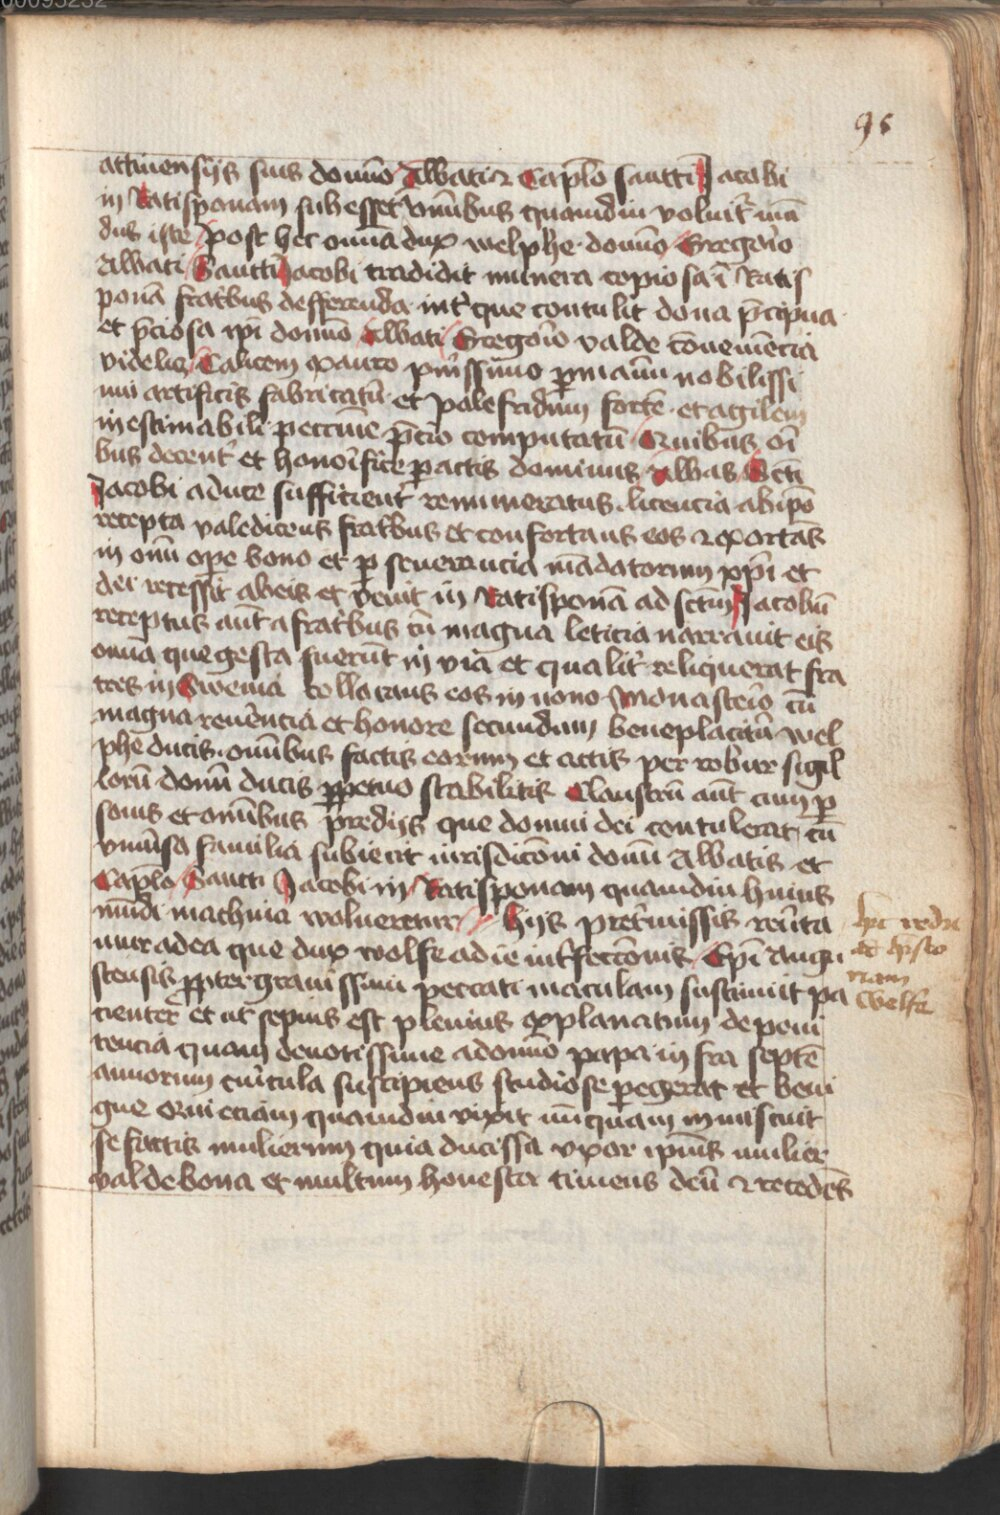 00095232
95
attinensijs suis domno Abbati et Caplo sancti Jacobi
in Ratisponam subesset omnibus quamdiu voluit̉ mū
dus iste post hec omnia dux welphe domno Gregorio
Abbati Sancti Jacobi tradidit munera copiosa ī Ratis
ponā fratribus defferenda int̉ que contulit dona p̄cipua
et p̄ciosa ip̄i domno Abbati Gregorio valde cōueniencia
videlicz Calicem ex auro purissimo per manum nobilissi
mi artificis fabricatū et palefridum fortē et agilem
inestimabili peccunie p̄cio computatū Quibus oī
bus decent̉ et honorifice peractis dominus Abbas Scti
Jacobi a duce sufficient̉ remuneratus licencia ab ip̄o
recepta valedicens fratribus et confortans eos et exortās
in omī ope bono et perseuerancia mādatorum xpi et
dei recessit ab eis et venit in Ratisponā ad sctm Jacobū
receptus aūt a fratribus cū magna leticia narrauit eis
omīa que gesta fuerūt in via et qualit̉ reliquerat fra
tres in Sweuia collocans eos in nouo Monasterio cū
magna reuerencia et honore secundum beneplacitū wel
phe ducis omnibus factis eorum et actis per robur sigil
lorū domni ducis perpetuo stabilitis Claustrū aūt cum per
sonis et omnibus predijs que domui dei contulerat cū
vniuersa familia subiecit iurisdicōni domni Abbatis et
Caplo Sancti Jacobi in Ratisponam quamdiu huius
mūdi machina wolueretur Hijs pretermissis reuerta
mur ad ea que dux wolfe a die int̉fectōnis Epi Augu
stensis propter grauissimi peccati maculam sustinuit pa
cienter et ut sepius est plenius explanatum de peni
tencia quam deuotissime a domno papa infra septē
annorum curricula suscipiens studiose pegerat et beni
gne Qui eciam quamdiu vixit nūquam inmiscuit
se factis mulierum quia ducissa vxor ip̄ius mulier
valde bona et multum honesta timens deū et recedēs
hic redit
ad hysto
riam
Welfe